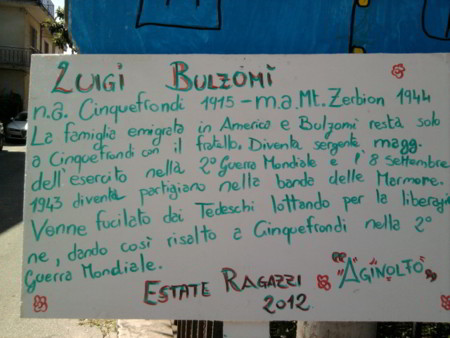 LUIGI BULZOMÌ
n.a. Cinquefrondi 1915 - m.a. Mt. Zerbion 1944
La famiglia emigrata in America e Bulzomì resta solo
a Cinquefrondi con il fratello. Diventa sergente magg.
dell'esercito nella 2° Guerra Mondiale e l'8 Settembre
1943 diventa partigiano nella banda delle Marmore.
Venne fucilato dai Tedeschi lottando per la liberazio
ne, dando così risalto a Cinquefrondi nella 2°
Guerra Mondiale.
"AGINOLTO"
ESTATE RAGAZZI
2012